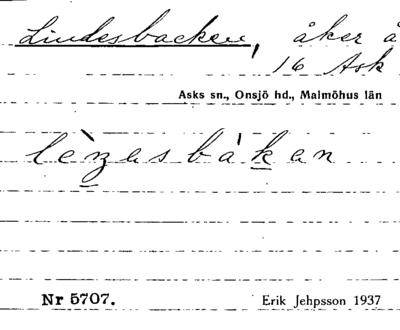 Lindesbacken, åker å
16 Ask
Asks sn., Onsjö hd., Malmöhus län
lèn̲asbàk̲an
Nr 5707.
Erik Jehpsson 1937